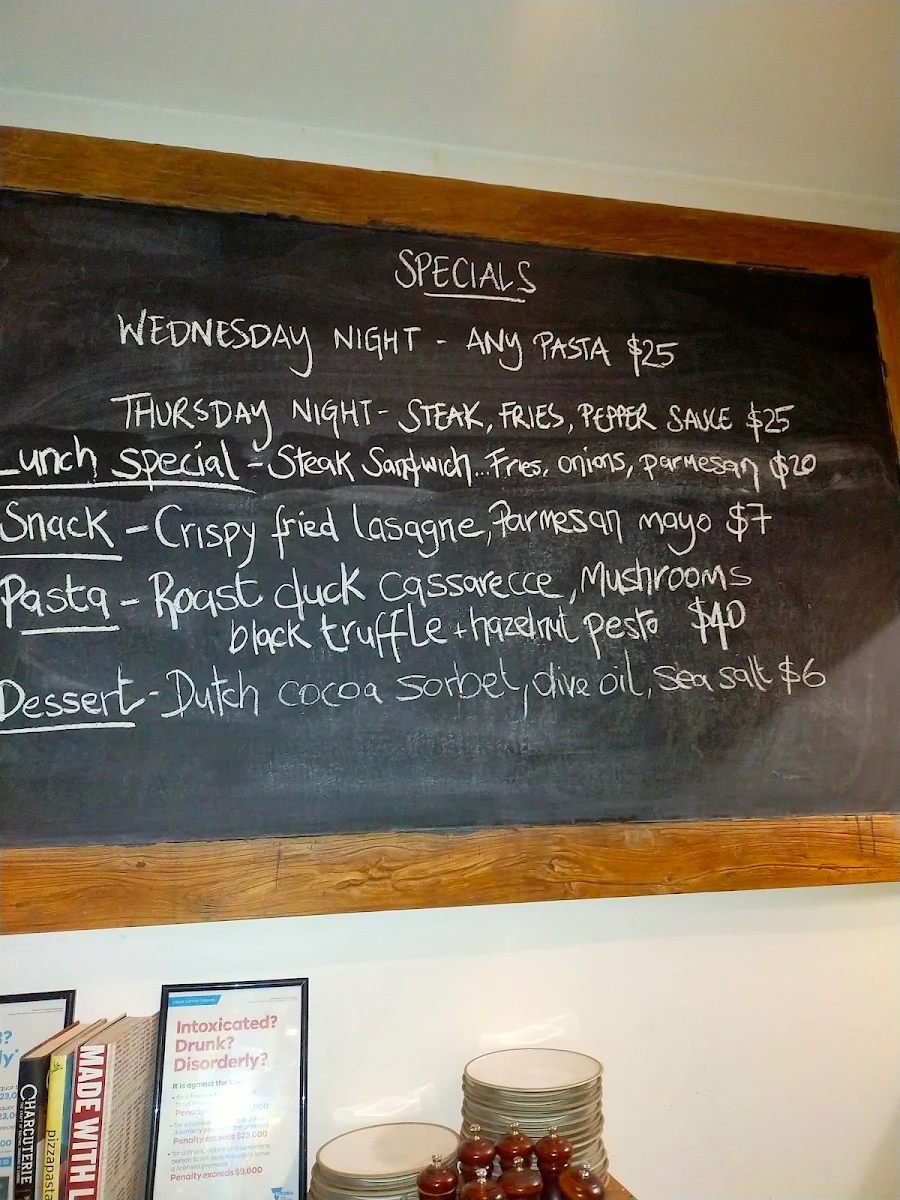 SPECIALS
WEDNESDAY NIGHT - ANY PASTA $25
THURSDAY NIGHT- STEAK, FRIES, PEPPER SAUCE $25
Lunch special - Steak Sandwich... Fries, onions, parmesan $20
Snack - Crispy fried lasagne, Parmesan mayo $7
Pasta - Roast duck cassarecce, Mushrooms
black truffle + hazelnut pesto $40
Dessert - Dutch cocoa sorbet, olive oil, sea salt $6
CHARCUTERIE
pizzapasta
MADE WITH
Intoxicated?
Drunk?
Disorderly?
It is against the law
Penalty exceeds $23,000
Penalty exceeds $9,000